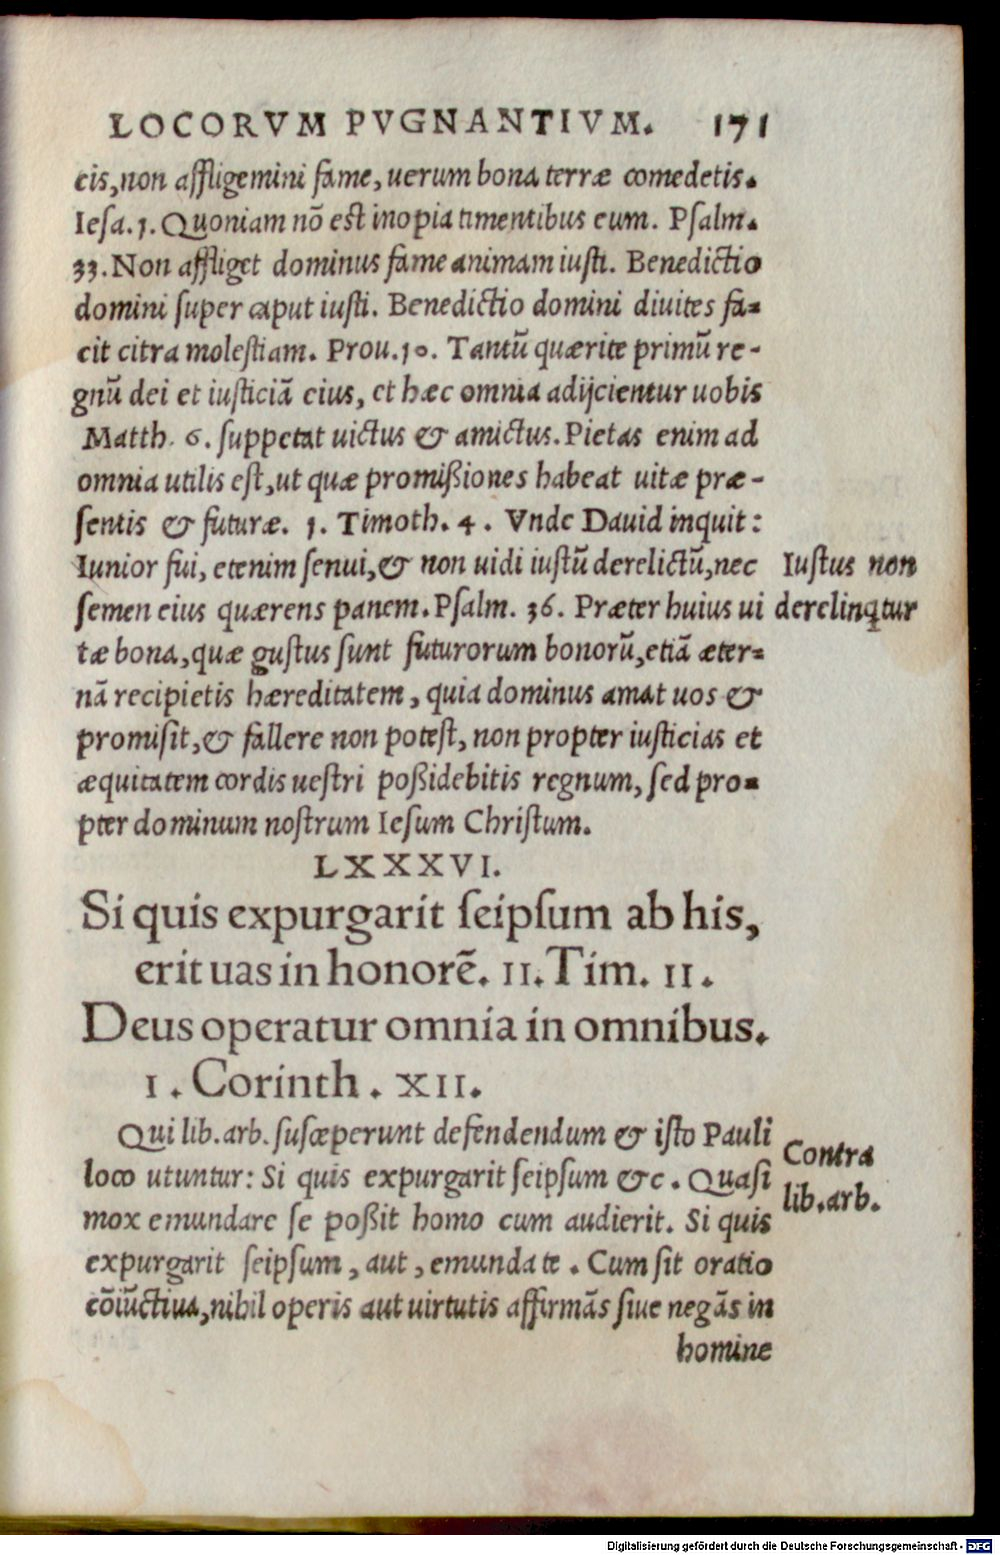 LOCORVM PVGNANTIVM. 171
cis, non affligemini fame, uerum bona terræ comedetis.
Iesa. 1. Quoniam nõ est inopia timentibus eum. Psalm.
33. Non affliget dominus fame animam iusti. Benedictio
domini super caput iusti. Benedictio domini diuites fa=
cit citra molestiam. Prou. 10. Tantũ quærite primũ re-
gnũ dei et iusticiã eius, et hæc omnia adijcientur uobis
Matth. 6. suppetat uictus & amictus. Pietas enim ad
omnia utilis est, ut quæ promißiones habeat uitæ præ-
sentis & futuræ. 1. Timoth. 4. Vnde Dauid inquit:
Iunior fui, etenim senui, & non uidi iustũ derelictũ, nec
semen eius quærens panem. Psalm. 36. Præter huius ui
tæ bona, quæ gustus sunt futurorum bonorũ, etiã æter=
nã recipietis hæreditatem, quia dominus amat uos &
promisit, & fallere non potest, non propter iusticias et
æquitatem cordis uestri poßidebitis regnum, sed pro=
pter dominum nostrum Iesum Christum.
Iustus non
derelinq̃tur
LXXXVI.
Si quis expurgarit seipsum ab his,
erit uas in honorẽ. II. Tim. II.
Deus operatur omnia in omnibus.
I. Corinth. XII.
Qui lib. arb. susceperunt defendendum & isto Pauli
loco utuntur: Si quis expurgarit seipsum &c. Quasi
mox emundare se poßit homo cum audierit. Si quis
expurgarit seipsum, aut, emundate. Cum sit oratio
cõiũctiua, nihil operis aut uirtutis affirmãs siue negãs in
homine
Contra
lib. arb.
Digitalisierung gefördert durch die Deutsche Forschungsgemeinschaft - DFG